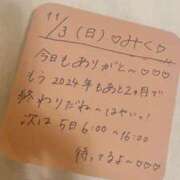 11/3(日)♡みく♡
今日もありがと〜♡♡♡
もう2024年もあと2ヶ月で
終わりだね〜はやいっ!
次は5日6:00〜16:00
待ってるよ〜♡♡♡